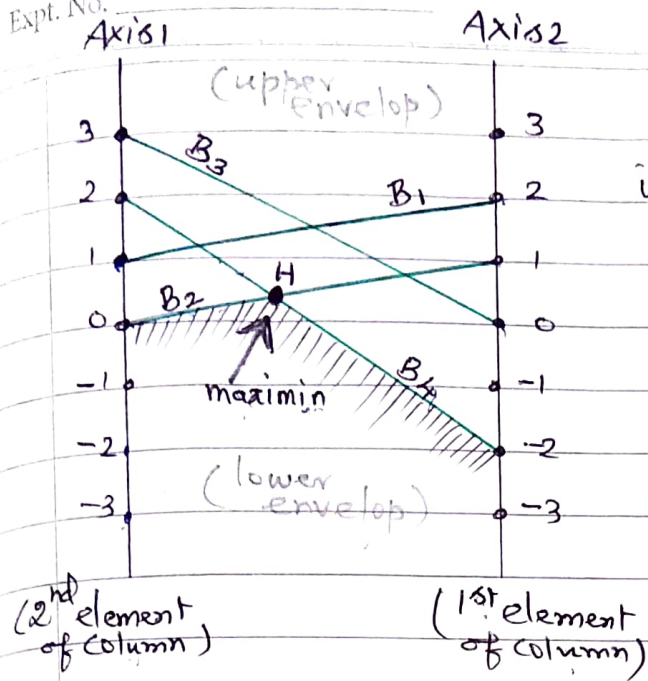 Expt. No.
Axis1 Axis2
(upper
envelop)
3 3
B3
2 B1 2
1 1
H
B2
0 0
B4
-1 maximin -1
-2 -2
(lower
envelop)
-3 -3
(2nd element
of column)
(1st element
of column)